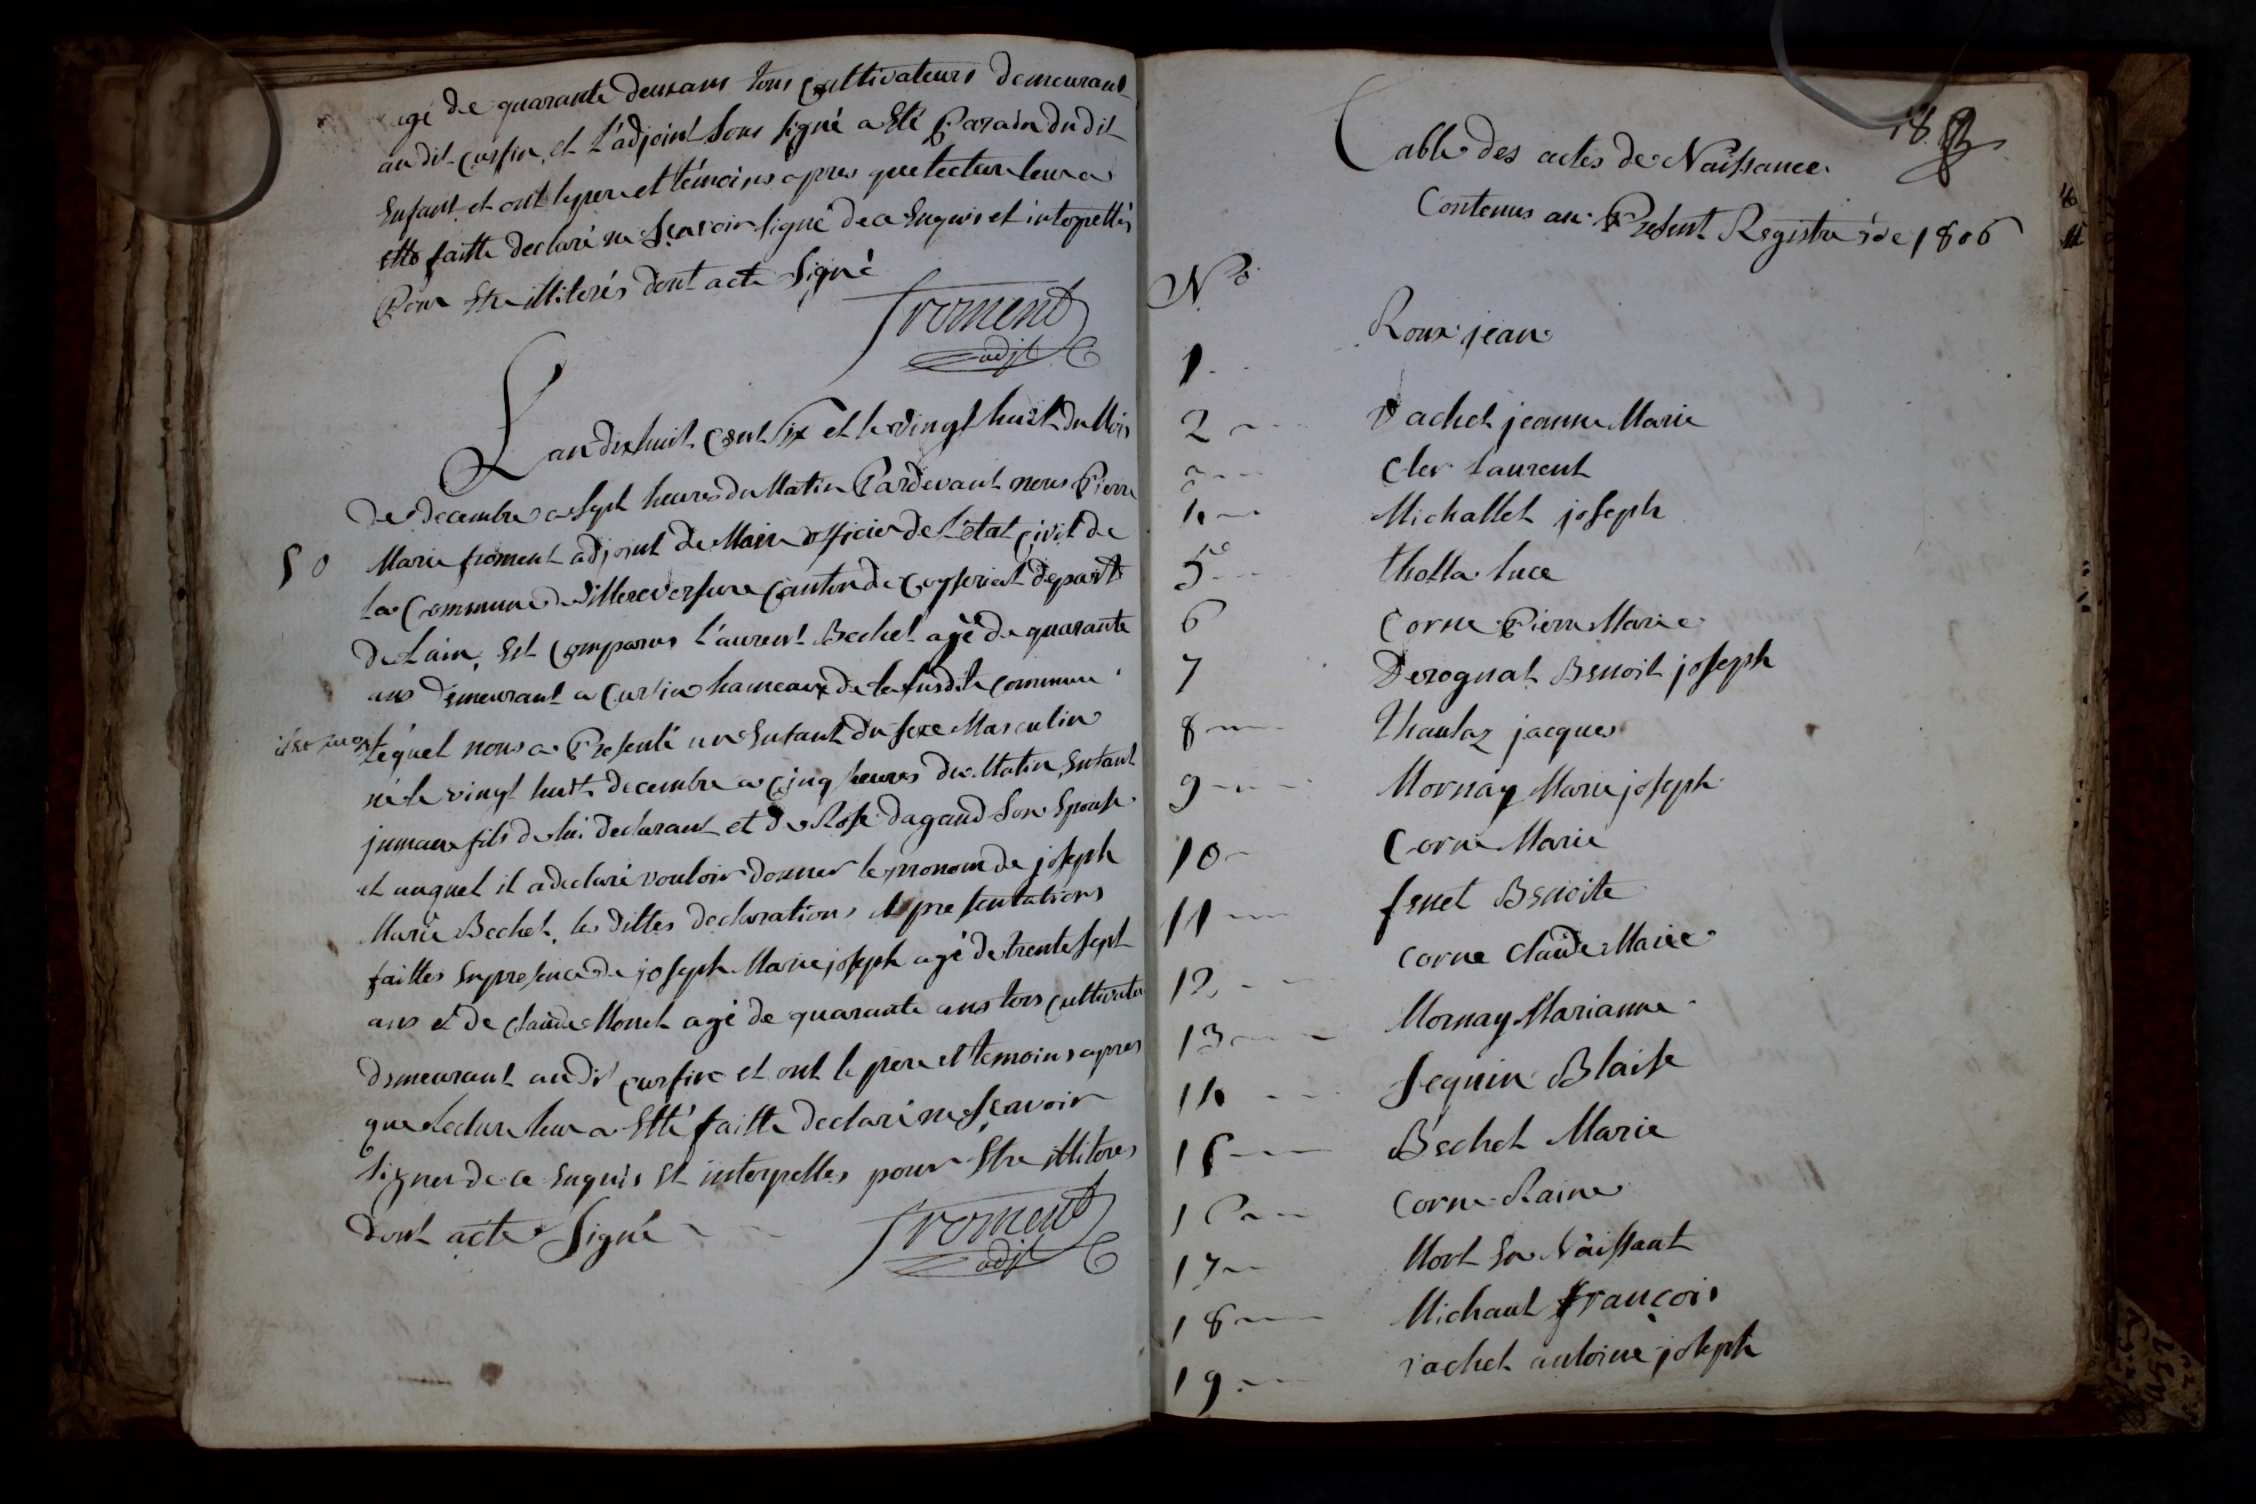 agé de quarante deux ans tous cultivateurs demeurant
audit cursin, et L'adjoint sous signé a Eté Parain dudit
Enfant et ont le pere et témoins apres que lecture leur a
etté faitte declaré ne sçavoir signé de ce Enquis et interpellés
Pour Etre illiterés dont acte Signé
froment
adjt
L'an dix huit Cent Six et le vingt huit du Mois
De decembre a Sept heures du Matin Pardevant nous Pierre
50
Marie froment adjoint de Maire officier de L'état Civil de
la Commune de Villereversure Canton de Ceyseriat depart
De L'ain, Est Comparus L'aurent Bechet agé de quarante
ans Demeurant a Cursin hameaux de la susdite commune
Léquel nous a Presenté un Enfant du sexe Masculin
né le vingt huit decembre a Cinq heures du Matin, Enfant
jumaux fils de lui declarant et De Rose dagand Son Epouse
et auquel il a declaré vouloir donner le pronom de joseph
Marie Bechet, les dittes declarations et presentations
faittes En presence de joseph Marie joseph agé de trente sept
ans et de claude Monet agé de quarante ans tous cultivateu
demeurant audit cursin et ont le pere et temoins apres
que Lecture leur a Etté faitte declaré ne Sçavoir
signer de ce Enquis Et interpelles pour Etre illiteres
Dont acte Signé
froment
adjt
18
Table des actes de Naissance
Contenus au Present Registre de 1806
N.o
1 Roux jean
2 vachet jeanne Marie
3 Cler Laurent
4 Michallet joseph
5 tholla Luce
6 Corne Pierre Marie
7 Derognat Benoit joseph
8 Thaulaz jacques
9 Mornay Marie joseph
10 Corne Marie
11 fenet Benoite
12 Corne Claude Marie
13 Mornay Marianne
14 Sequin Blaise
15 Bechet Marie
16 Corne Raine
17 Mort En Naissant
18 Michaut françois
19 vachet antoine joseph